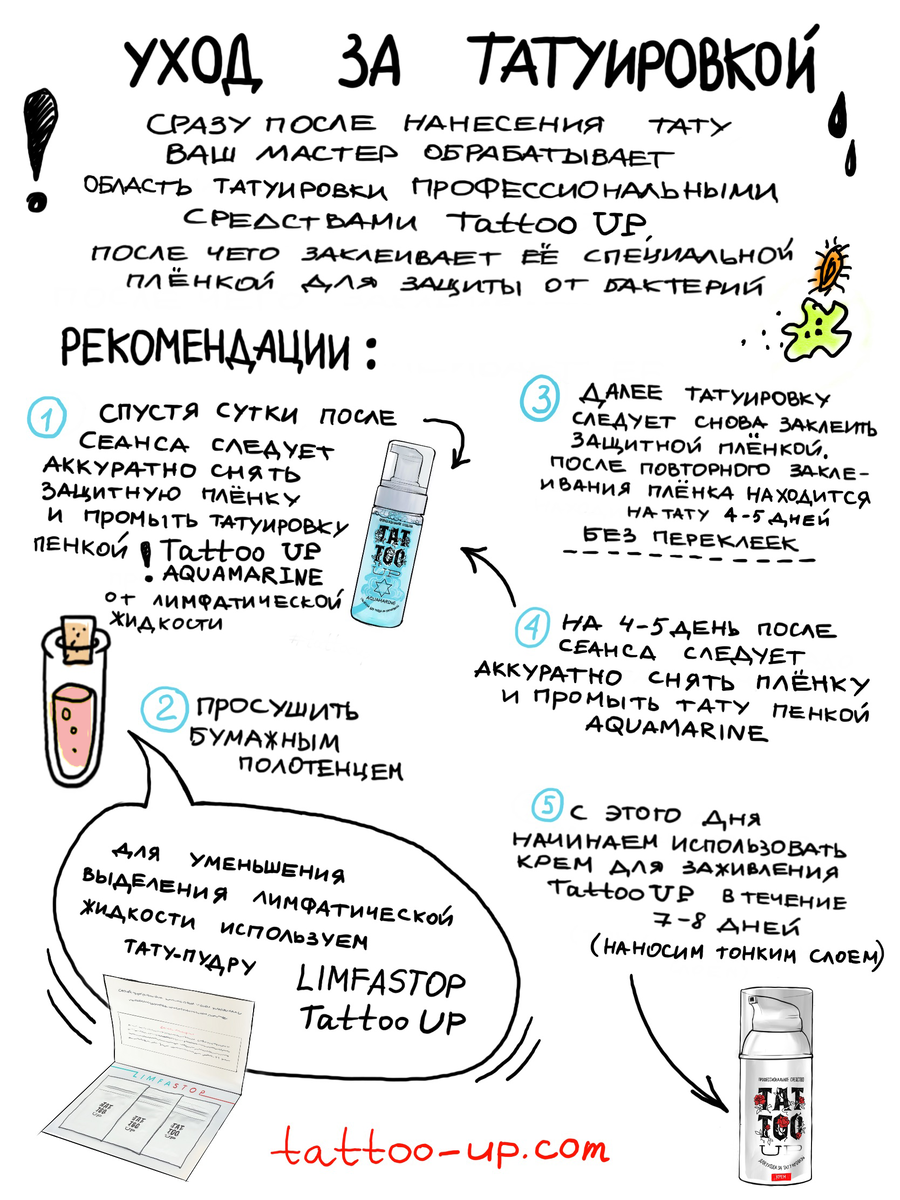 УХОД ЗА ТАТУИРОВКОЙ
СРАЗУ ПОСЛЕ НАНЕСЕНИЯ ТАТУ
ВАШ МАСТЕР ОБРАБАТЫВАЕТ
ОБЛАСТЬ ТАТУИРОВКИ ПРОФЕССИОНАЛЬНЫМИ
СРЕДСТВАМИ Tattoo UP,
ПОСЛЕ ЧЕГО ЗАКЛЕИВАЕТ ЕЁ СПЕЦИАЛЬНОЙ
ПЛЁНКОЙ ДЛЯ ЗАЩИТЫ ОТ БАКТЕРИЙ
РЕКОМЕНДАЦИИ:
1 СПУСТЯ СУТКИ ПОСЛЕ
СЕАНСА СЛЕДУЕТ
АККУРАТНО СНЯТЬ
ЗАЩИТНУЮ ПЛЁНКУ
И ПРОМЫТЬ ТАТУИРОВКУ
ПЕНКОЙ ! Tattoo UP
AQUAMARINE
ОТ ЛИМФАТИЧЕСКОЙ
ЖИДКОСТИ
TAT
TOO
UP
AQUAMARINE
2 ПРОСУШИТЬ
БУМАЖНЫМ
ПОЛОТЕНЦЕМ
ДЛЯ УМЕНЬШЕНИЯ
ВЫДЕЛЕНИЯ ЛИМФАТИЧЕСКОЙ
ЖИДКОСТИ ИСПОЛЬЗУЕМ
ТАТУ-ПУДРУ
LIMFASTOP
Tattoo UP
LIMFASTOP
TAT
TOO
UP
TAT
TOO
UP
TAT
TOO
UP
3 ДАЛЕЕ ТАТУИРОВКУ
СЛЕДУЕТ СНОВА ЗАКЛЕИТЬ
ЗАЩИТНОЙ ПЛЁНКОЙ.
ПОСЛЕ ПОВТОРНОГО ЗАКЛЕ-
ИВАНИЯ ПЛЁНКА НАХОДИТСЯ
НА ТАТУ 4-5 ДНЕЙ
БЕЗ ПЕРЕКЛЕЕК
4 НА 4-5 ДЕНЬ ПОСЛЕ
СЕАНСА СЛЕДУЕТ
АККУРАТНО СНЯТЬ ПЛЁНКУ
И ПРОМЫТЬ ТАТУ ПЕНКОЙ
AQUAMARINE
5 С ЭТОГО ДНЯ
НАЧИНАЕМ ИСПОЛЬЗОВАТЬ
КРЕМ ДЛЯ ЗАЖИВЛЕНИЯ
Tattoo UP В ТЕЧЕНИЕ
7-8 ДНЕЙ
(НАНОСИМ ТОНКИМ СЛОЕМ)
ПРОФЕССИОНАЛЬНОЕ СРЕДСТВО
TAT
TOO
UP
КРЕМ
tattoo-up.com